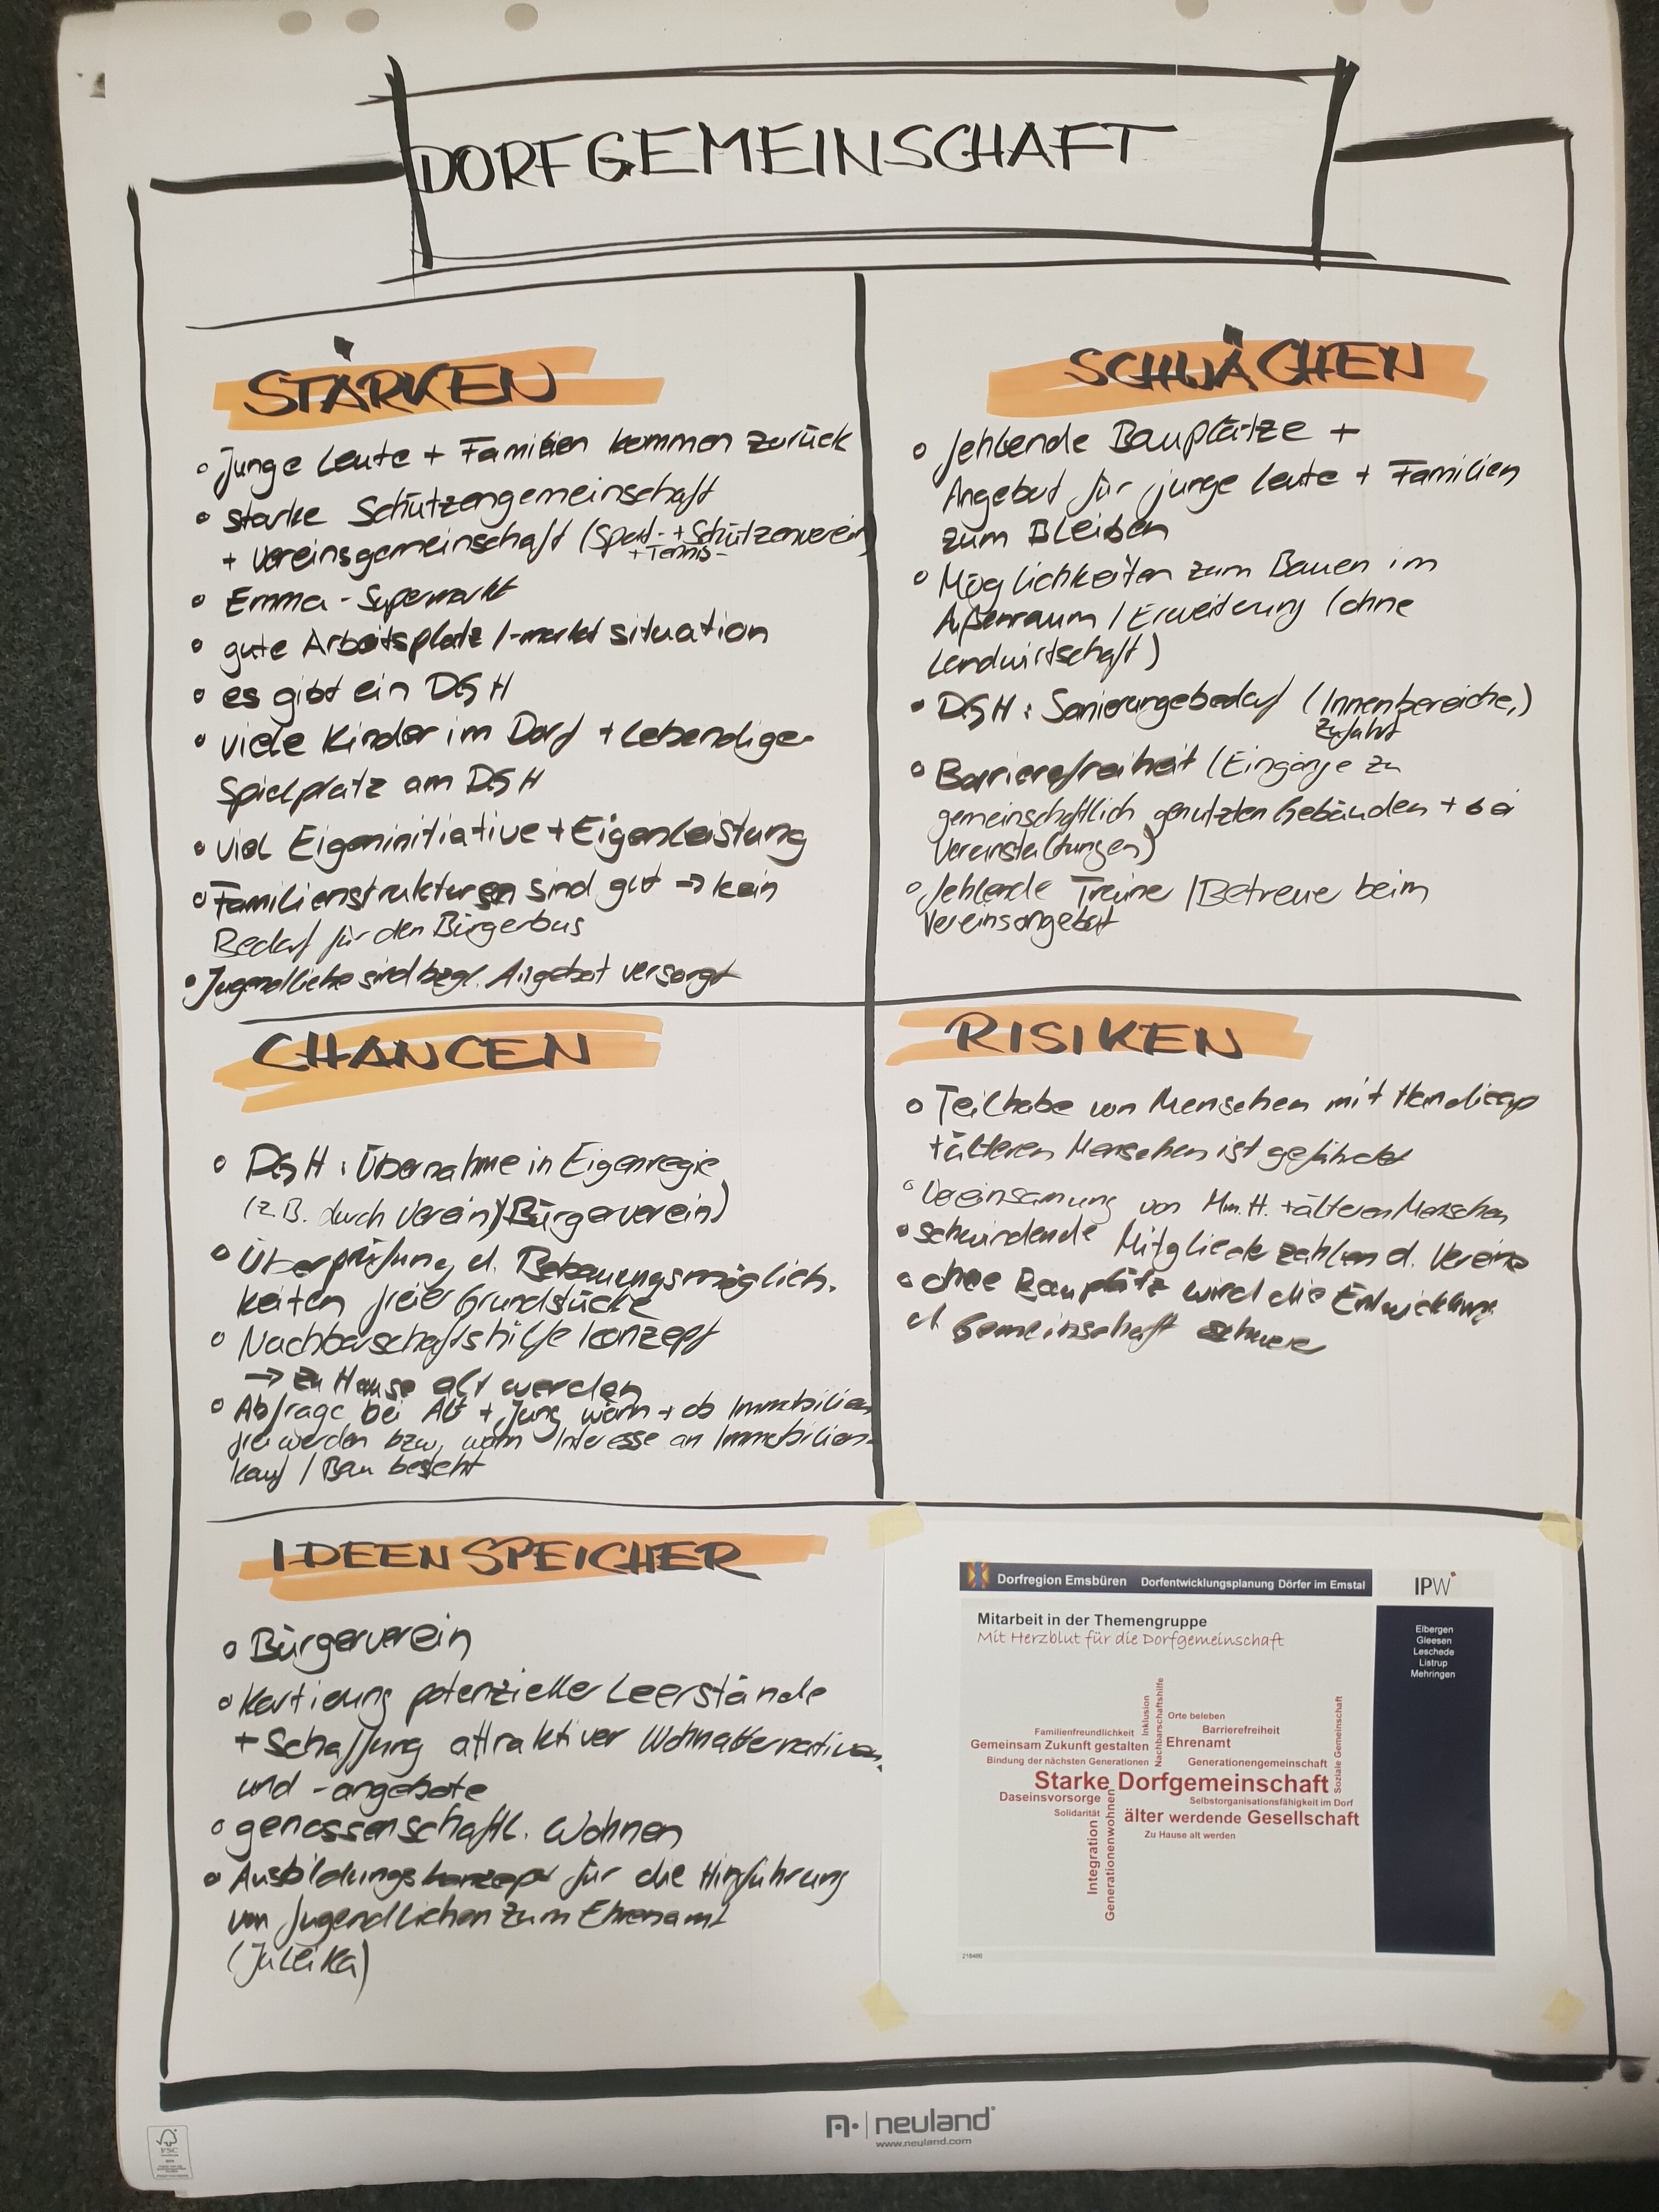 DORFGEMEINSCHAFT
STÄRKEN
• junge Leute + Familien kommen zurück
• starke Schützengemeinschaft
+ Vereinsgemeinschaft (Sport- + Schützenverein)
+ Tennis-
• Emma-Supermarkt
• gute Arbeitsplatz/-markt situation
• es gibt ein DGH
• viele Kinder im Dorf + lebendiger
Spielplatz am DGH
• viel Eigeninitiative + Eigenleistung
• Familienstrukturen sind gut → kein
Bedarf für den Bürgerbus
• Jugendliche sind bzgl. Angebot versorgt
SCHWÄCHEN
• fehlende Bauplätze +
Angebot für junge Leute + Familien
zum Bleiben
• Möglichkeiten zum Bauen im
Außenraum / Erweiterung (ohne
Landwirtschaft)
• DGH: Sanierungsbedarf (Innenbereiche,)
Zufahrt
• Barrierefreiheit (Eingänge zu
gemeinschaftlich genutzten Gebäuden + bei
Veranstaltungen)
• fehlende Trainer / Betreuer beim
Vereinsangebot
CHANCEN
• DGH: Übernahme in Eigenregie
(z.B. durch Verein)(Bürgerverein)
• Überprüfung d. Bebauungsmöglich-
keiten freier Grundstücke
• Nachbarschaftshilfe Konzept
→ zu Hause alt werden
• Abfrage bei Alt + Jung wann + ob Immobilien
frei werden bzw. wann Interesse an Immobilien-
kauf / Bau besteht
RISIKEN
• Teilhabe von Menschen mit Handicap
+ älteren Menschen ist gefährdet
• Vereinsamung von M.m.H. + älteren Menschen
• schwindende Mitgliederzahlen d. Vereine
• ohne Bauplätze wird die Entwicklung
d. Gemeinschaft schwer
IDEENSPEICHER
• Bürgerverein
• Kartierung potenzieller Leerstände
+ Schaffung attraktiver Wohnalternativen
und -angebote
• genossenschaftl. Wohnen
• Ausbildungskonzept für die Hinführung
von Jugendlichen zum Ehrenamt
(JuLeiKa)
Dorfregion Emsbüren Dorfentwicklungsplanung Dörfer im Emstal
IPW
Mitarbeit in der Themengruppe
Mit Herzblut für die Dorfgemeinschaft
Elbergen
Gleesen
Leschede
Listrup
Mehringen
Inklusion
Nachbarschaftshilfe
Orte beleben
Familienfreundlichkeit
Barrierefreiheit
Gemeinsam Zukunft gestalten
Ehrenamt
Bindung der nächsten Generationen
Generationengemeinschaft
Soziale Gemeinschaft
Starke Dorfgemeinschaft
Daseinsvorsorge
Selbstorganisationsfähigkeit im Dorf
Solidarität
älter werdende Gesellschaft
Zu Hause alt werden
Integration
Generationenwohnen
218486
neuland
www.neuland.com
FSC